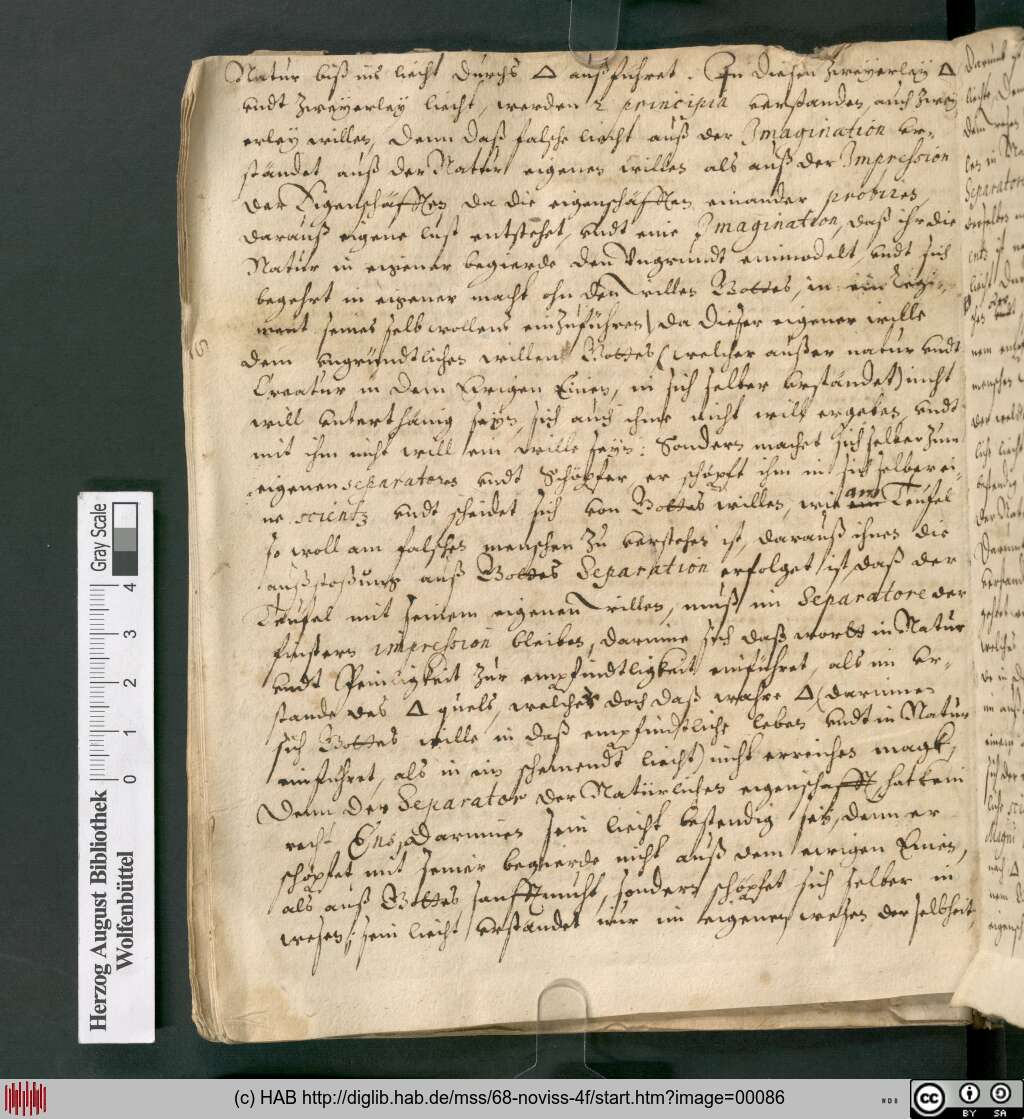 Natur biß ins liecht durchs △ außführet. In diesen zweyerley △
vndt zweyerley liecht, werden 2 principia verstanden, auch zwey
erley willen, denn daß falsche liecht auß der Imagination vr-
ständet auß der Natur eigenen willen als auß der Impression
der Eigenschäfften da die eigenschäfften einander probiren,
darauß eigene lust entstehet, vndt eine Imagination, daß ihr die
Natur in eigener begierde den Vngrundt einmodelt, vndt sich
begehrt in eigener macht ohn den willen Gottes, in ein Regi-
ment seines selb wollens einzuführen/ da dieser eigener wille
dem vngründtlichen willen Gottes (welcher außer natur vndt
Creatur in dem Ewigen Einen, in sich selber vrständet) nicht
will vnterthänig seyn, sich auch ihme nicht will ergeben, vndt
mit ihm nicht will ein wille seyn: Sondern machet sich selber zum
eigenen separatores vndt Schöpfer er schöpft ihm in sich selber ei-
ne scientz vndt scheidet sich von Gottes willen, wie am Teufel
so woll am falschen menschen zu verstehen ist, darauß ihnen die
außstoßung auß Gottes Separation erfolget ist, daß der
Teufel mit seinem eigenen willen, muß im Separatore der
finstern impression bleiben, darinne sich daß wortt in Natur
vndt Peinligkeit zur empfindtligkeit einführet, als im vr-
stande des △ quels, welches doch daß wahre △ (darinnen
sich Gottes wille in daß empfindtliche leben vndt in Natur
einführet, als in ein scheinendt liecht) nicht erreichen magk,
Denn der Separator der Natürlichen eigenschafft, hat kein
recht Ens, darinnen sein liecht bestendig sey, denn er
schöpfet mit seiner begierde nicht auß dem ewigen Einen,
als auß Gottes sanfftmuht, sondern schöpfet sich selber in
wesen; sein liecht vrständet nur im eigenen wesen der selbheit,
5
Herzog August Bibliothek
Wolfenbüttel
0 1 2 3 4
Gray Scale
(c) HAB http://diglib.hab.de/mss/68-noviss-4f/start.htm?image=00086
WDB
cc BY SA